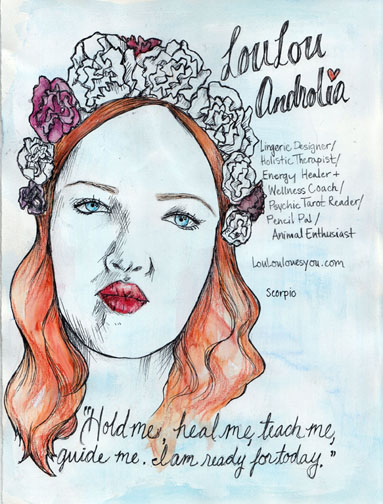 LouLou
Androlia
Lingerie Designer/
Holistic Therapist/
Energy Healer +
Wellness Coach/
Psychic Tarot Reader/
Pencil Pal/
Animal Enthusiast
LouLoulovesyou.com
Scorpio
"Hold me, heal me, teach me,
guide me. I am ready for today."